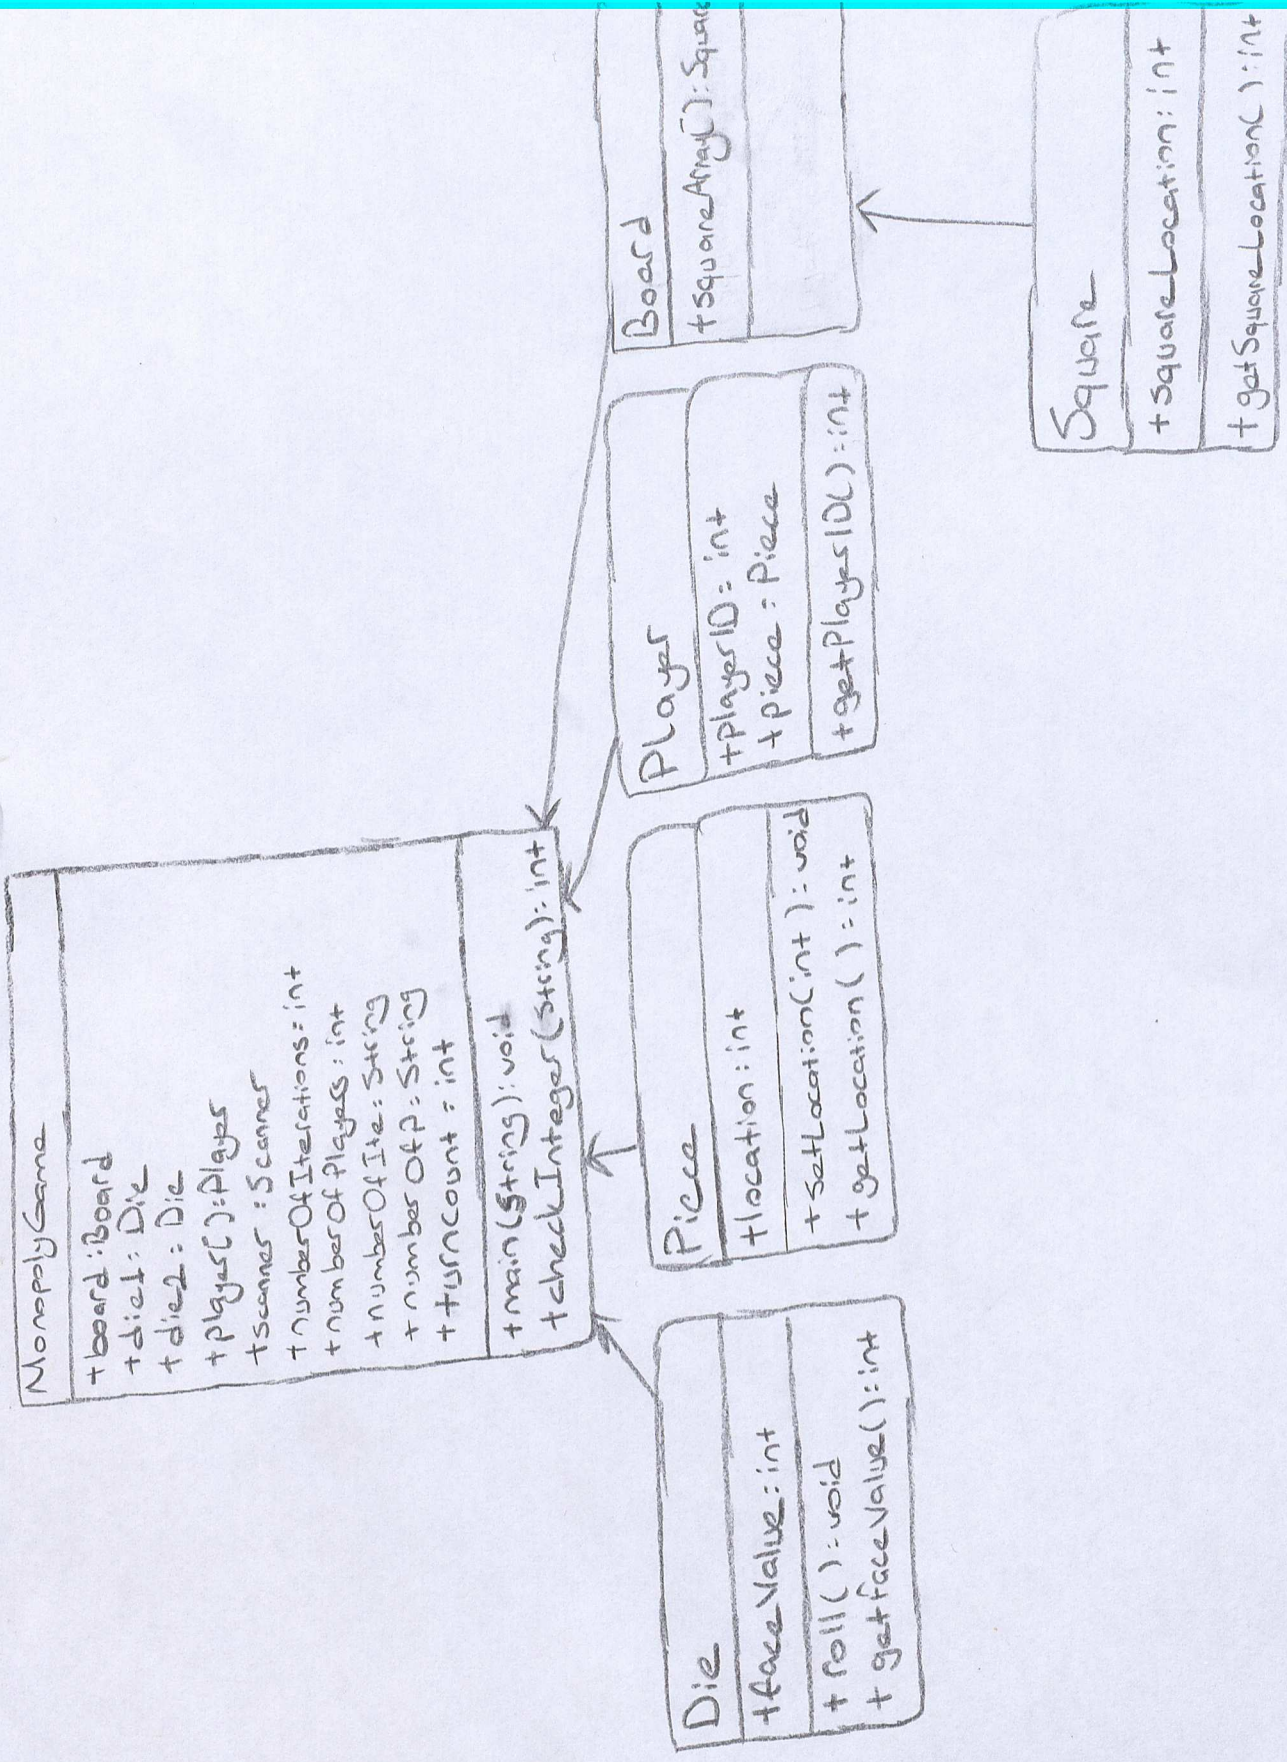 MonopolyGame
+board:Board
+die1:Die
+die2:Die
+player[]:Player
+scanner:Scanner
+numberOfIterations:int
+numberOfPlayers:int
+numberOfIte:String
+numberOfP:String
+turnCount:int
+main(String):void
+checkInteger(String):int
Die
+faceValue:int
+roll():void
+getFaceValue():int
Piece
+location:int
+setLocation(int):void
+getLocation():int
Player
+playerID:int
+piece:Piece
+getPlayerID():int
Board
+squareArray[]:Square
Square
+squareLocation:int
+getSquareLocation():int